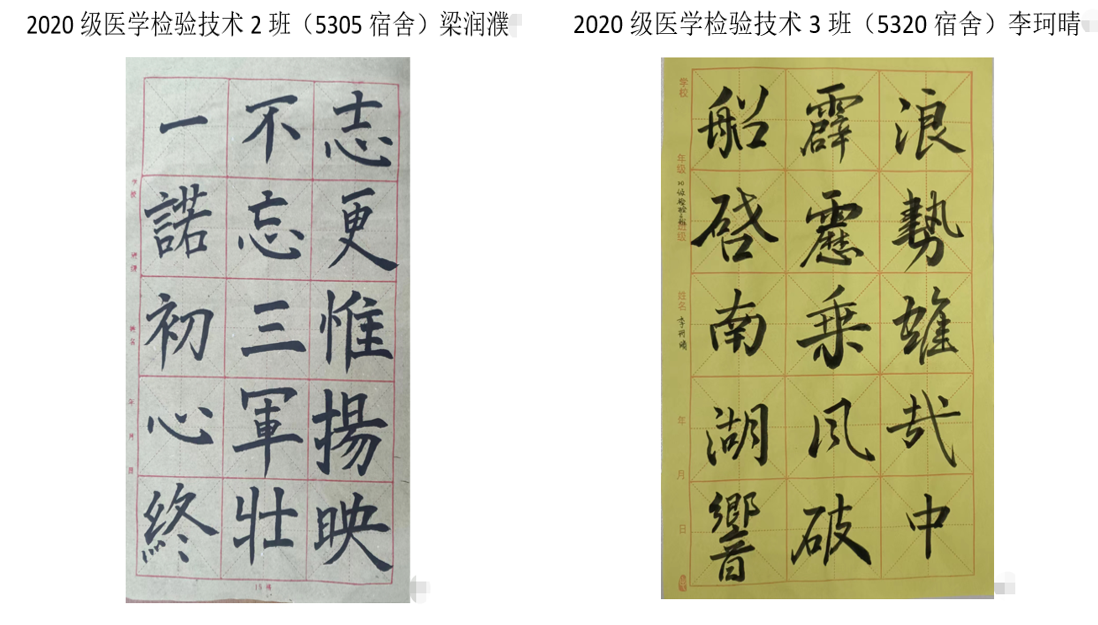 2020级医学检验技术2班（5305宿舍）梁润濮
一諾初心終
不忘三軍壯
志更惟揚映
2020级医学检验技术3班（5320宿舍）李珂晴
学校
年级
班级
姓名 李珂晴
年
月
日
船啓南湖響
霹靂乘風破
浪勢雄哉中